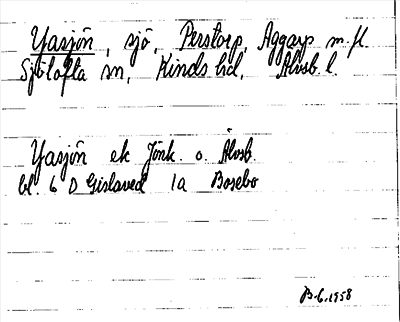 Yasjön, sjö, Perstorp, Aggarp m. fl.
Sjötofta sn, Kinds hd, Älvsb. l.
Yasjön ek Jönk. o. Älvsb.
bl. 6 D Gislaved 1a Bosebo
B. G. 1958